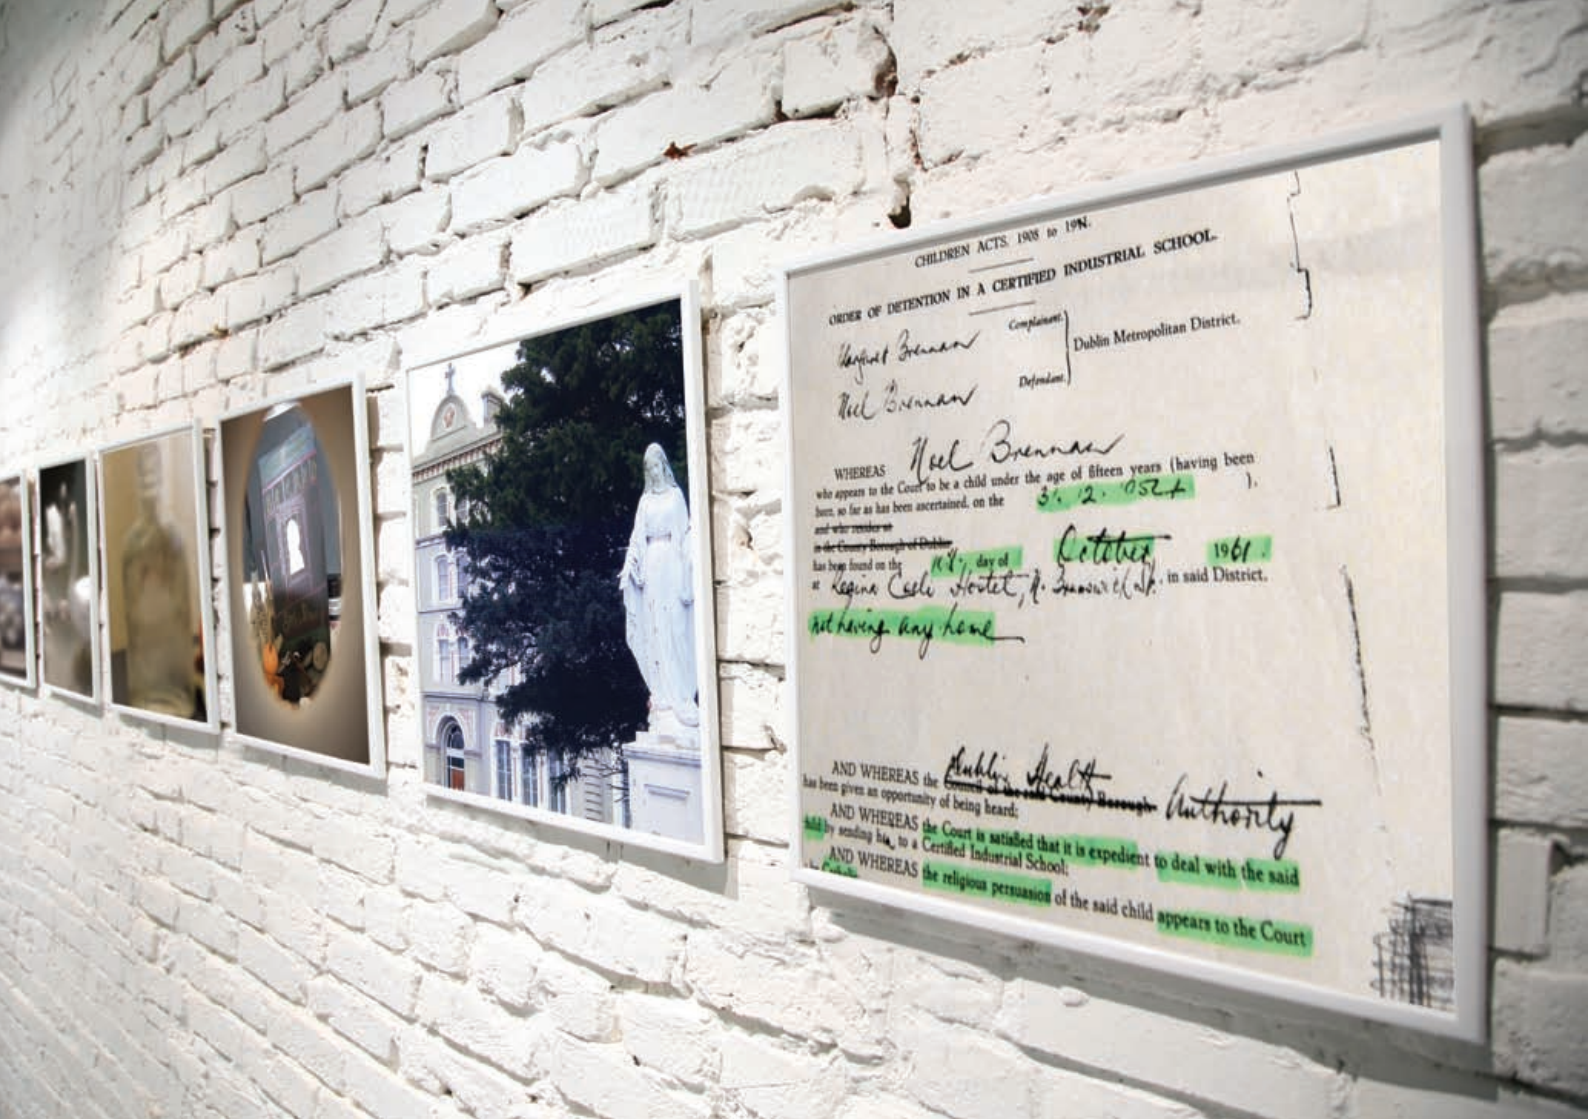 CHILDREN ACTS, 1908 to 19
ORDER OF DETENTION IN A CERTIFIED INDUSTRIAL SCHOOL.
Margaret Brennan Complainant.
Dublin Metropolitan District.
Noel Brennan Defendant.
WHEREAS Noel Brennan
who appears to the Court to be a child under the age of fifteen years (having been
born, so far as has been ascertained, on the ).
and who resides at
in the County Borough of Dublin
has been found on the day of October 1961.
at Regina Coeli Hostel, N. Brunswick St. in said District.
not having any home
AND WHEREAS the Dublin Health Authority
Council of the said County Borough
has been given an opportunity of being heard;
AND WHEREAS the Court is satisfied that it is expedient to deal with the said
child by sending him to a Certified Industrial School;
AND WHEREAS the religious persuasion of the said child appears to the Court
Catholic